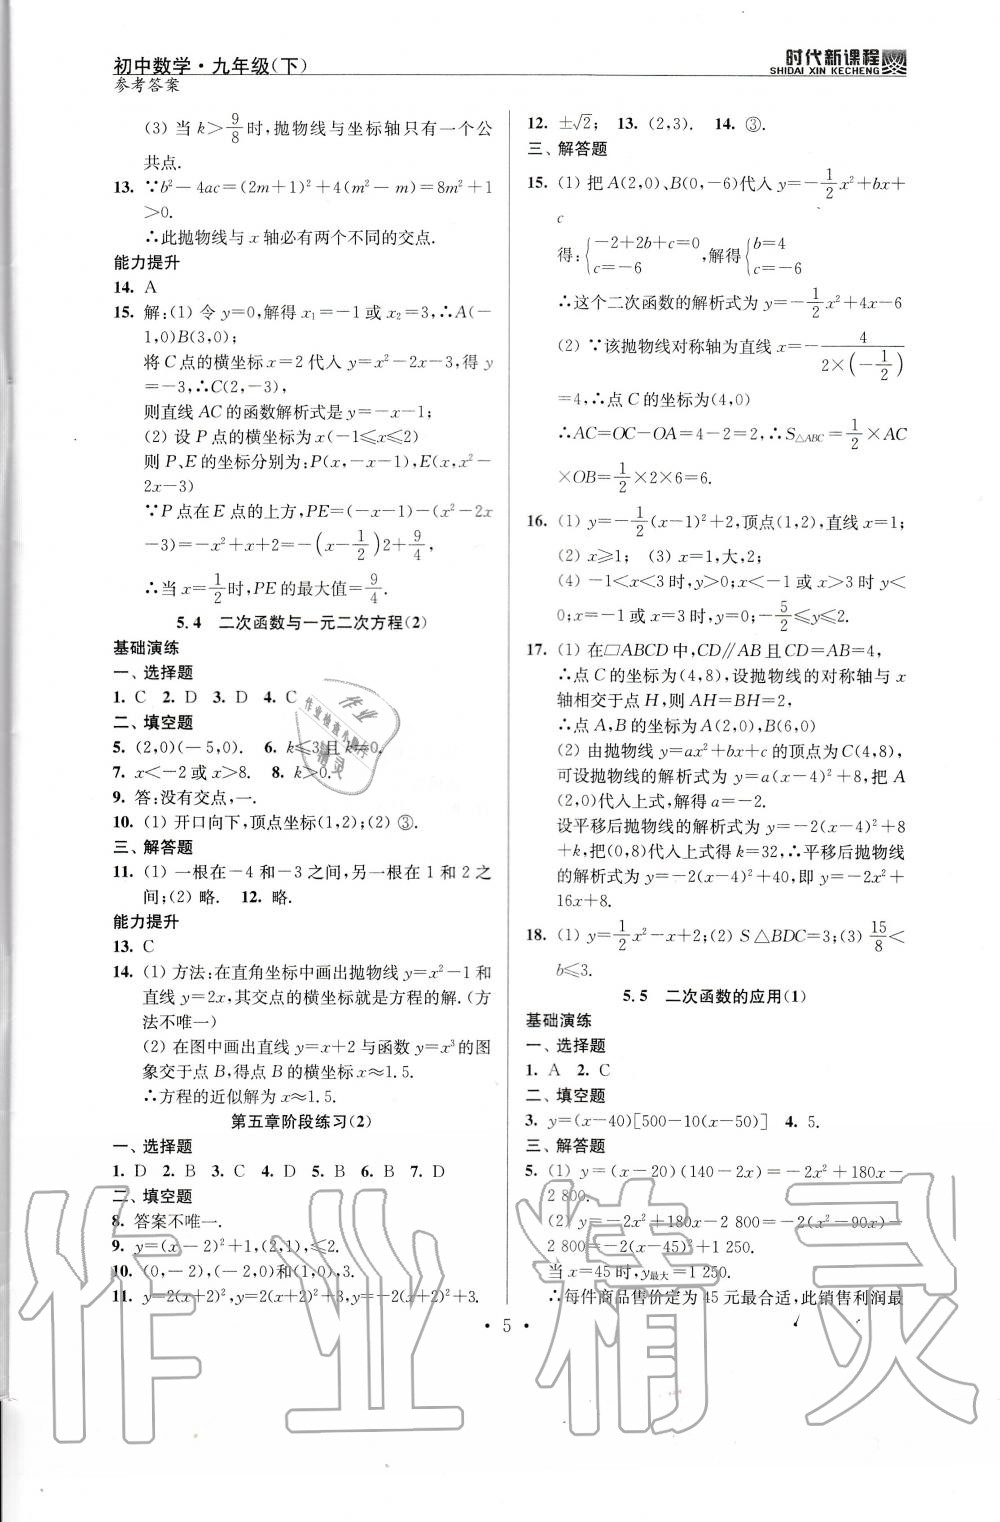 初中数学·九年级(下)
参考答案
时代新课程
SHIDAI XIN KECHENG
(3) 当 k>9/8 时,抛物线与坐标轴只有一个公
共点.
13. ∵b²-4ac=(2m+1)²+4(m²-m)=8m²+1
>0.
∴此抛物线与 x 轴必有两个不同的交点.
能力提升
14. A
15. 解:(1) 令 y=0,解得 x₁=-1 或 x₂=3,∴A(-
1,0)B(3,0);
将 C 点的横坐标 x=2 代入 y=x²-2x-3,得 y
=-3,∴C(2,-3),
则直线 AC 的函数解析式是 y=-x-1;
(2) 设 P 点的横坐标为 x(-1⩽x⩽2)
则 P、E 的坐标分别为:P(x,-x-1),E(x,x²-
2x-3)
∵P 点在 E 点的上方,PE=(-x-1)-(x²-2x
-3)=-x²+x+2=-(x-1/2)2+9/4,
∴当 x=1/2时,PE 的最大值=9/4.
5.4 二次函数与一元二次方程(2)
基础演练
一、选择题
1. C 2. D 3. D 4. C
二、填空题
5. (2,0)(-5,0). 6. k⩽3且 k≠0.
7. x<-2 或 x>8. 8. k>0.
9. 答:没有交点,一.
10. (1) 开口向下,顶点坐标(1,2);(2) ③.
三、解答题
11. (1) 一根在-4 和-3 之间,另一根在 1 和 2 之
间;(2) 略. 12. 略.
能力提升
13. C
14. (1) 方法:在直角坐标中画出抛物线 y=x²-1 和
直线 y=2x,其交点的横坐标就是方程的解.(方
法不唯一)
(2) 在图中画出直线 y=x+2 与函数 y=x³的图
象交于点 B,得点 B 的横坐标 x≈1.5.
∴方程的近似解为 x≈1.5.
第五章阶段练习(2)
一、选择题
1. D 2. B 3. C 4. D 5. B 6. B 7. D
二、填空题
8. 答案不唯一.
9. y=(x-2)²+1,(2,1),⩽2.
10. (0,-2),(-2,0)和(1,0),3.
11. y=2(x+2)²,y=2(x+2)²+3,y=-2(x+2)²+3.
12. ±√2; 13. (2,3). 14. ③.
三、解答题
15. (1) 把 A(2,0)、B(0,-6)代入 y=-1/2x²+bx+
c
得:{-2+2b+c=0 c=-6,解得{b=4 c=-6
∴这个二次函数的解析式为 y=-1/2x²+4x-6
(2) ∵该抛物线对称轴为直线 x=-4/(2×(-1/2))
=4,∴点 C 的坐标为(4,0)
∴AC=OC-OA=4-2=2,∴S△ABC=1/2×AC
×OB=1/2×2×6=6.
16. (1) y=-1/2(x-1)²+2,顶点(1,2),直线 x=1;
(2) x⩾1; (3) x=1,大,2;
(4) -1<x<3 时,y>0;x<-1 或 x>3 时 y<
0;x=-1 或 x=3 时,y=0;-5/2⩽y⩽2.
17. (1) 在□ABCD 中,CD∥AB 且 CD=AB=4,
∴点 C 的坐标为(4,8),设抛物线的对称轴与 x
轴相交于点 H,则 AH=BH=2,
∴点 A,B 的坐标为 A(2,0),B(6,0)
(2) 由抛物线 y=ax²+bx+c 的顶点为 C(4,8),
可设抛物线的解析式为 y=a(x-4)²+8,把 A
(2,0)代入上式,解得 a=-2.
设平移后抛物线的解析式为 y=-2(x-4)²+8
+k,把(0,8)代入上式得 k=32,∴平移后抛物线
的解析式为 y=-2(x-4)²+40,即 y=-2x²+
16x+8.
18. (1) y=1/2x²-x+2;(2) S△BDC=3;(3) 15/8<
b⩽3.
5.5 二次函数的应用(1)
基础演练
一、选择题
1. A 2. C
二、填空题
3. y=(x-40)[500-10(x-50)] 4. 5.
三、解答题
5. (1) y=(x-20)(140-2x)=-2x²+180x-
2 800.
(2) y=-2x²+180x-2 800=-2(x²-90x)-
2 800=-2(x-45)²+1 250.
当 x=45 时,y最大=1 250.
∴每件商品售价定为 45 元最合适,此销售利润最
• 5 •
作业
作业检查小助手
精灵
作业精灵